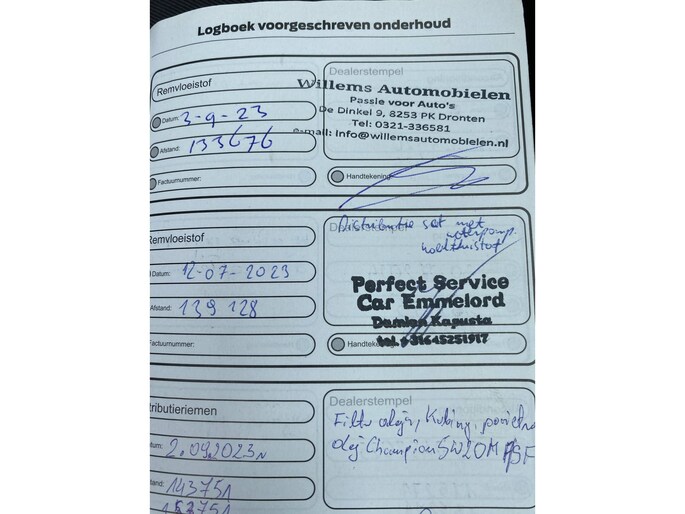 Logboek voorgeschreven onderhoud
Remvloeistof
Datum: 3-9-23
Afstand: 133676
Factuurnummer:
Dealerstempel
Willems Automobielen
Passie voor Auto's
De Dinkel 9, 8253 PK Dronten
Tel: 0321-336581
e-mail: info@willemsautomobielen.nl
Handtekening
Remvloeistof
Datum: 12-07-2023
Afstand: 139 128
Factuurnummer:
Distributie set met
waterpomp.
koelvloeistof
Perfect Service
Car Emmelord
Damian Kapusta
tel. +31645251917
Handtekening
tributieriemen
tum: 2.09.2023
tand: 143751
153751
Dealerstempel
Filtr oleju, Kabiny, powietrza
olej Champion 5W20M